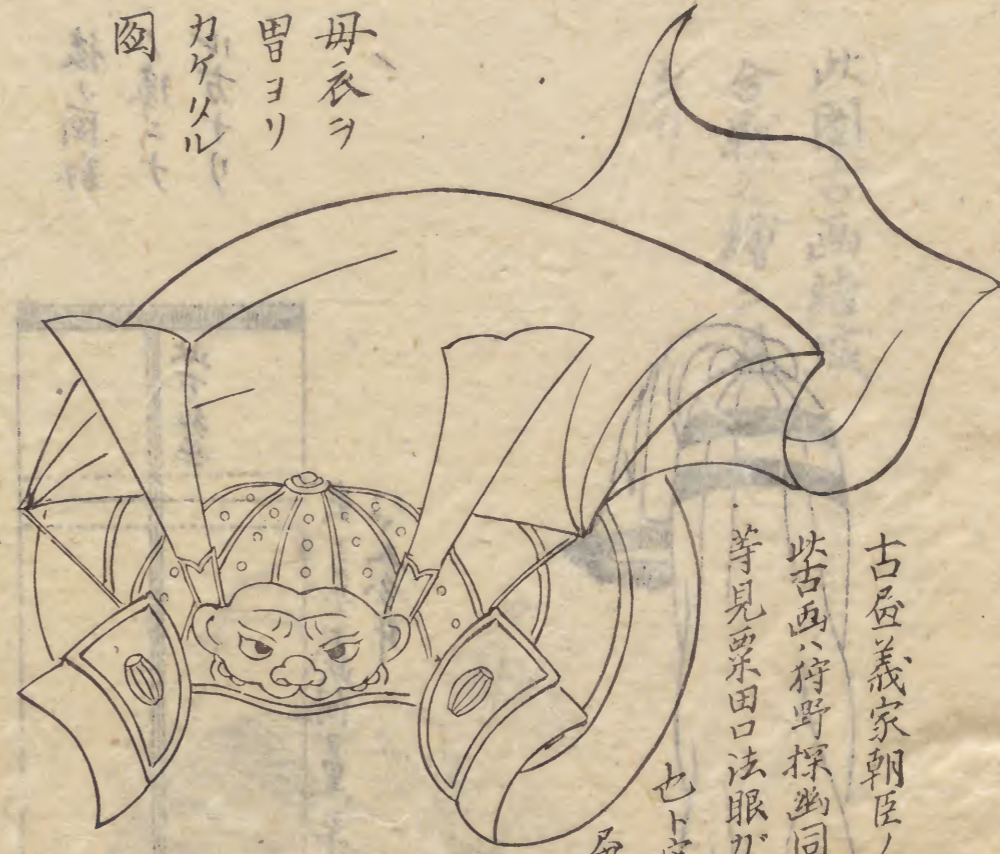 古畫義家朝臣ノ
此古画ハ狩野探幽同
等見栗田口法眼ガ
也ト
母衣ヲ
冑ヨリ
カケタル
図